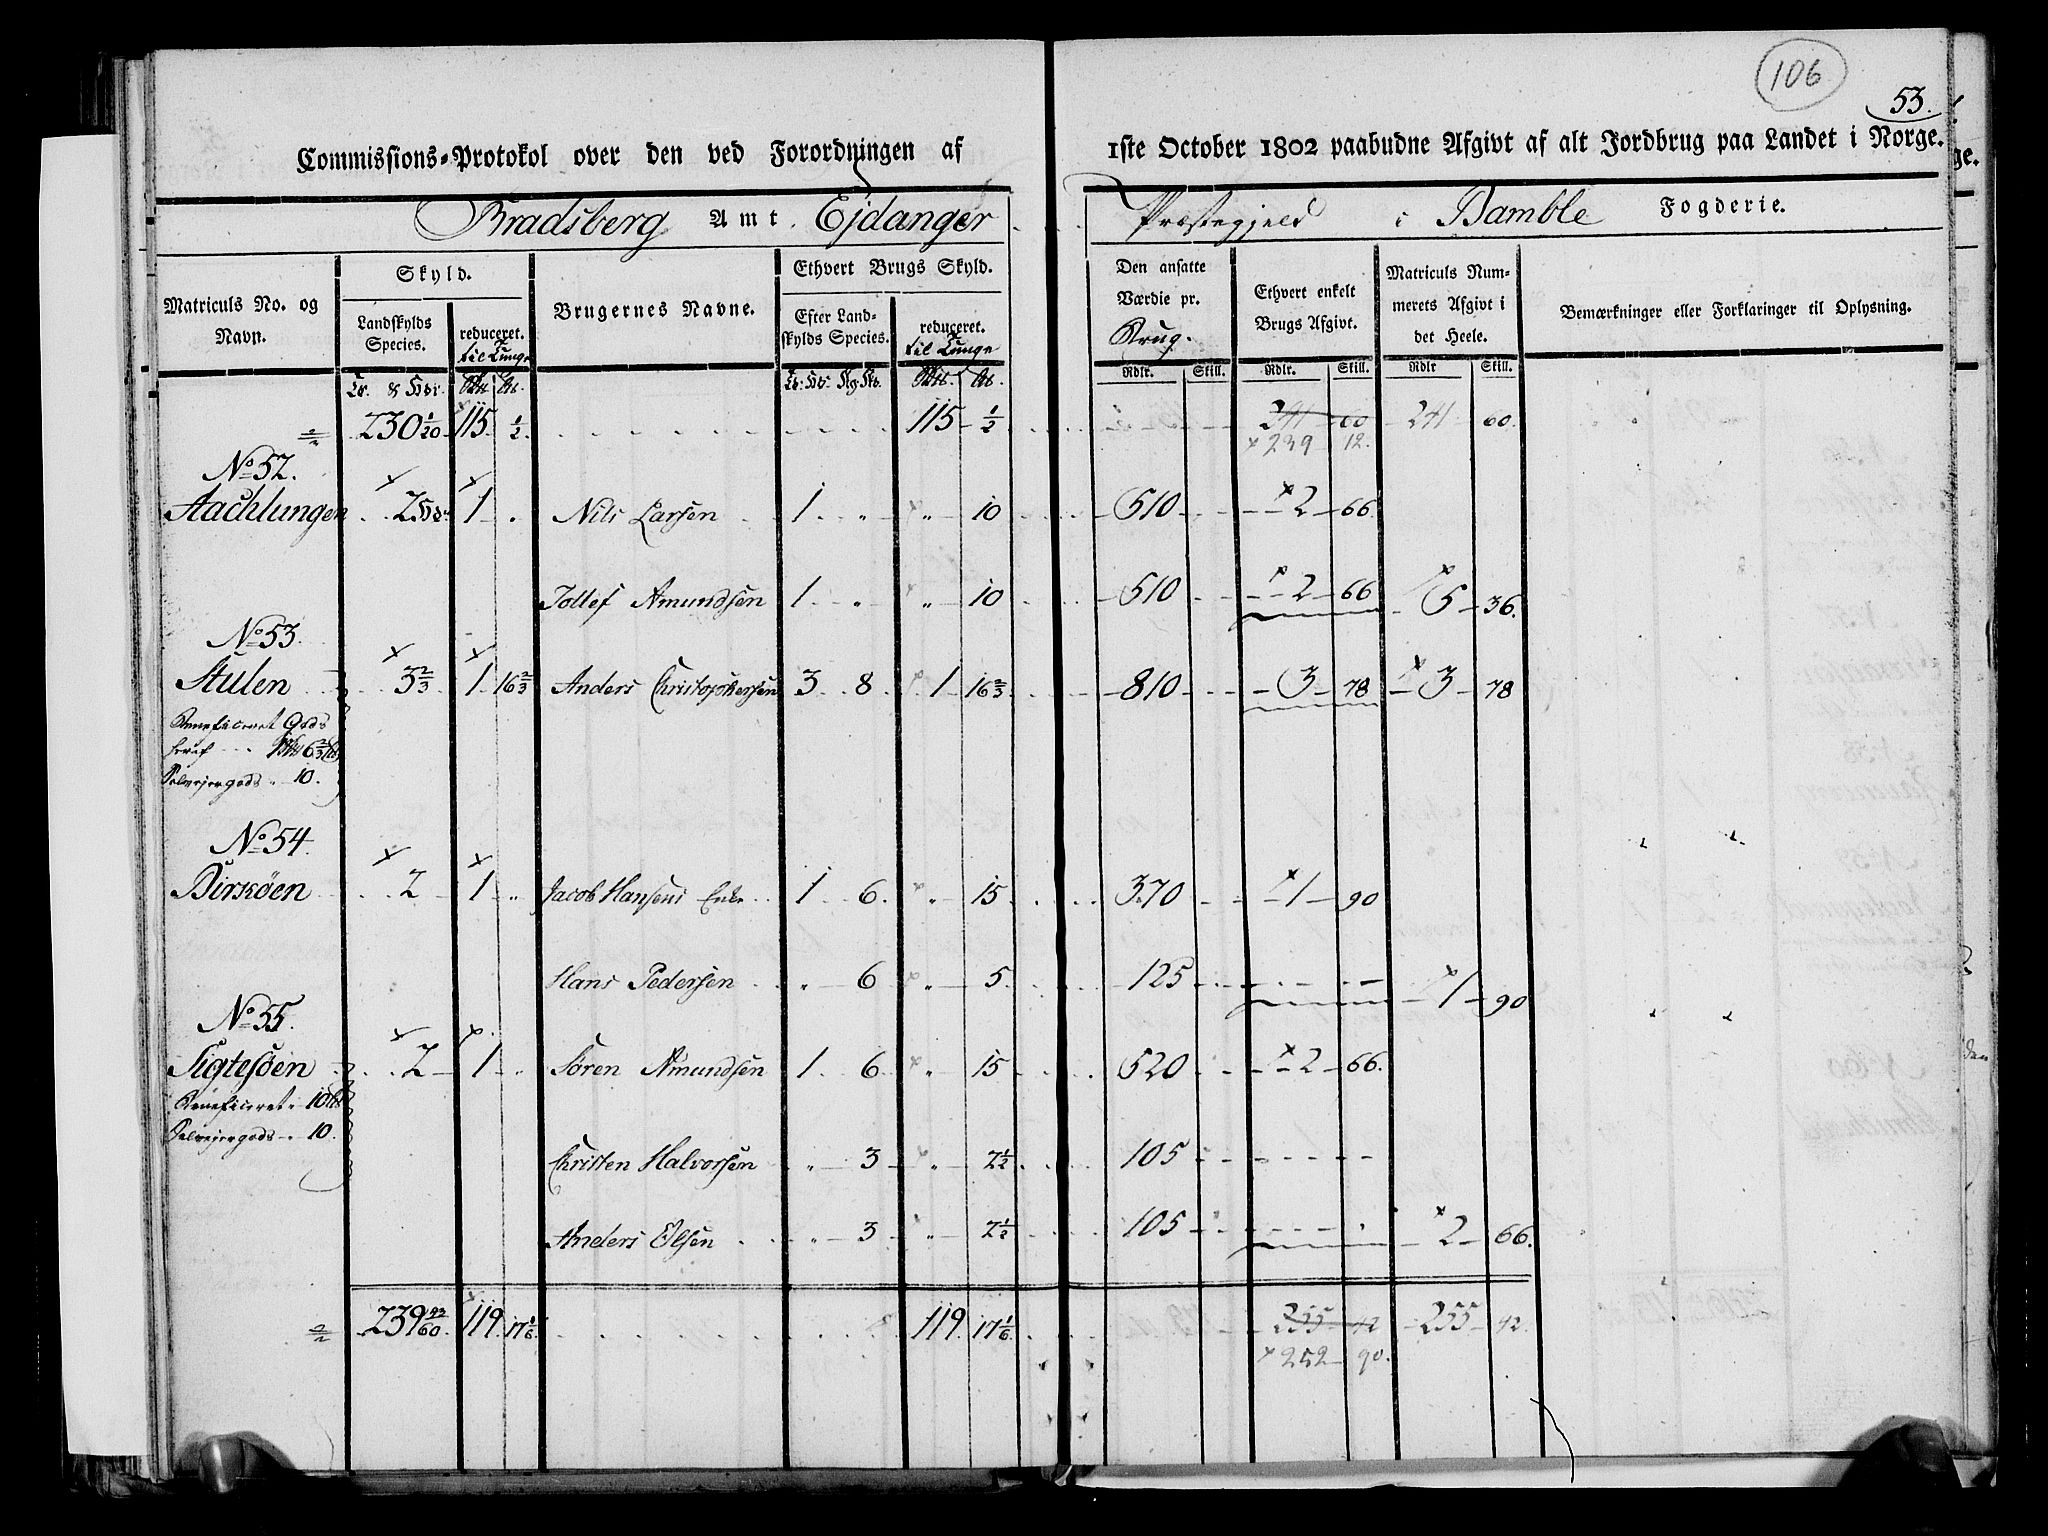 106
53.
Commissions-Protokol over den ved Forordningen af 1ste October 1802 paabudne Afgivt af alt Jordbrug paa Landet i Norge.
Bradsberg Amt Ejdanger Præstegjeld i Bamble Fogderie.
Matriculs No. og Navn. Skyld. Brugernes Navne. Ethvert Brugs Skyld. Den ansatte Værdie pr. Brug. Ethvert enkelt Brugs Afgivt. Matriculs Nummerets Afgivt i det Heele. Bemærkninger eller Forklaringer til Oplysning.
Landskylds Species. reduceret. til Tunge Efter Landskylds Species. reduceret. til Tunge
Rdlr. Skill. Rdlr. Skill. Rdlr Skill.
230 1/20 115 1/2 115 1/2 241 60 241 60
239 12.
No 52.
Aachlungen 2 1 Nils Larsen 1 " " 10 510 2 66
Tollef Amundsen 1 " " 10 510 2 66 5 36
No 53.
Stulen 3 2/3 1 16 2/3 Anders Christophersen 3 8 1 16 2/3 810 3 78 3 78
Beneficeret Gods
6 2/3
Selvejergods " 10.
No 54.
Birkøen 2 1 " Jacob Hansens Enke 1 6 " 15 370 1 90
Hans Pedersen " 6 " 5 125 1 90
No 55.
Sigtesøen 2 1 " Søren Amundsen 1 6 " 15 520 2 66.
Beneficeret " 10
Selvejergods " 10.
Christen Halvorsen " 3 " 2 1/2 105
Anders Olsen " 3 " 2 1/2 105 2 66.
239 43/60 119 17 1/6 119 17 1/6 255 42 255 42
252 90.